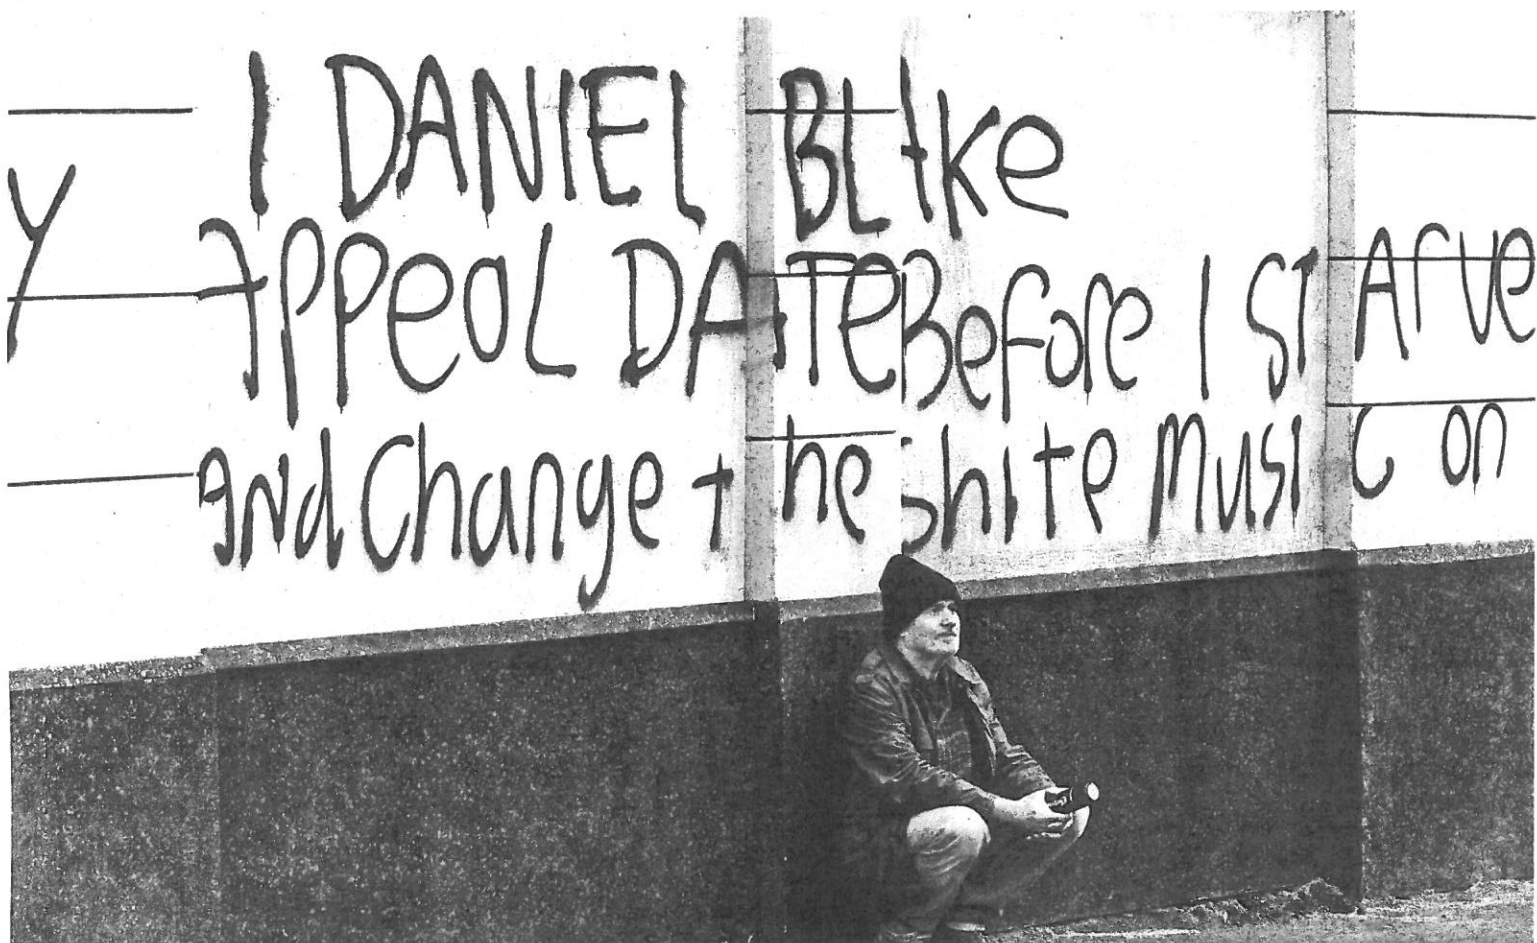 I DANIEL BLAke
y AppeaL DATE Before I STArve
And Change the Shite Music on